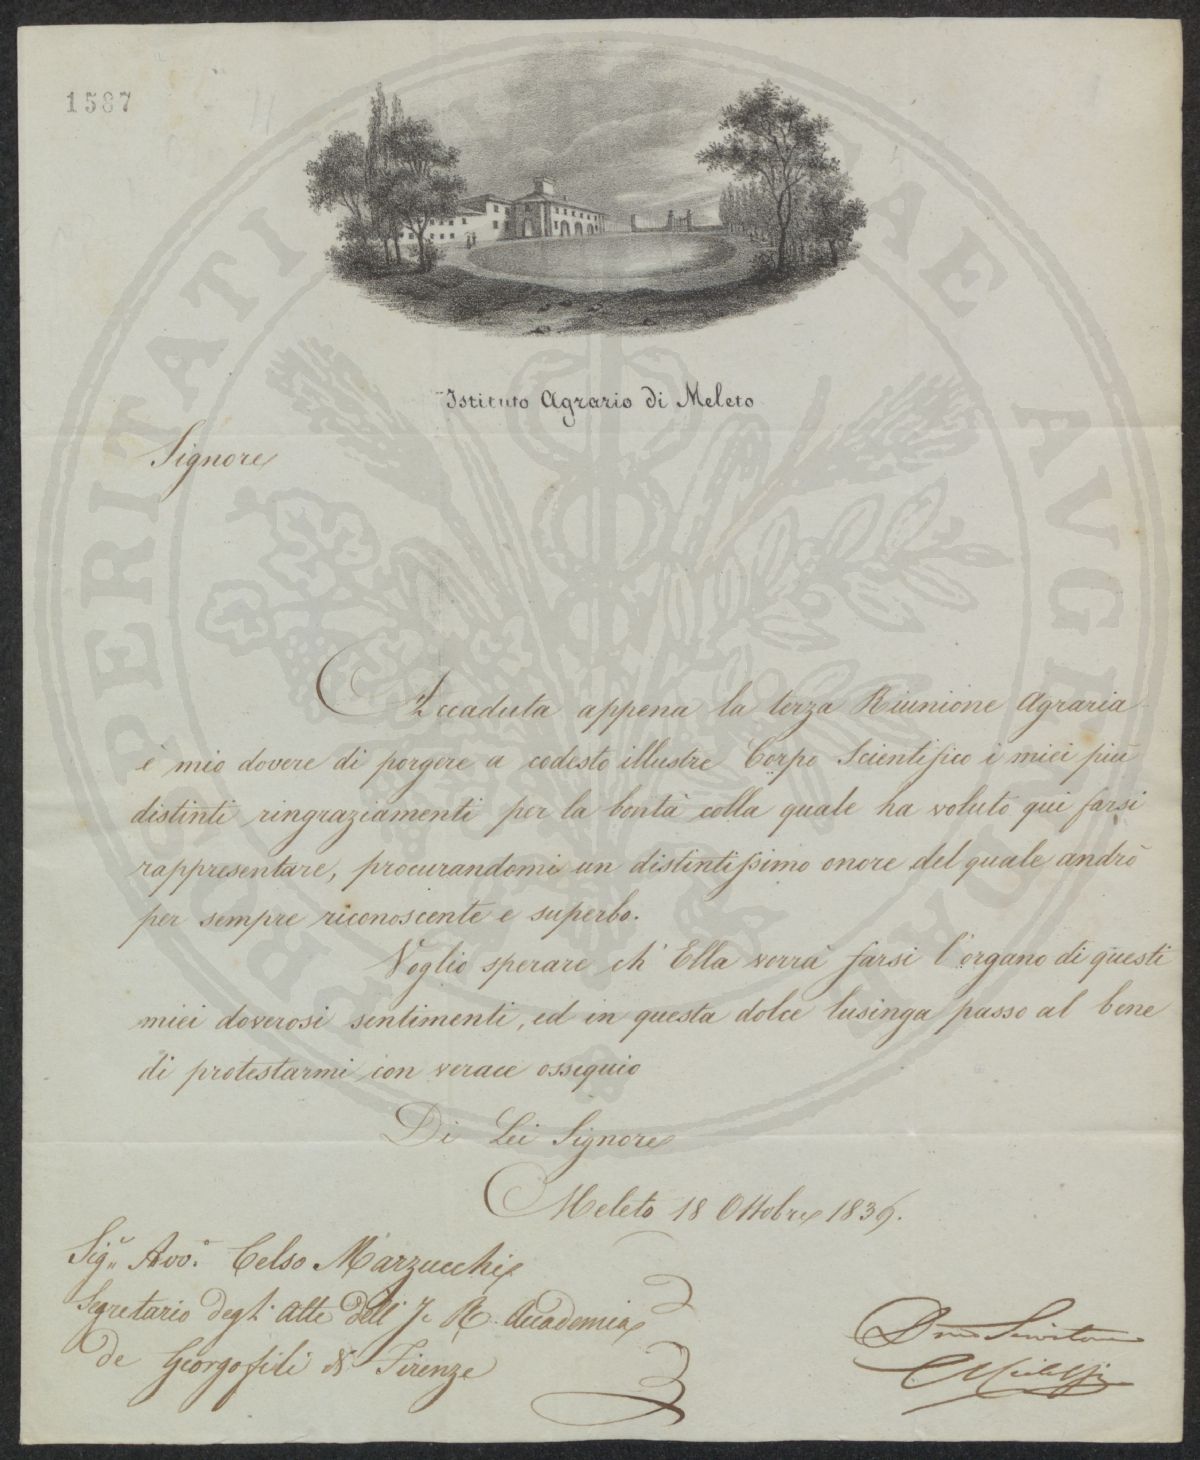 1587
Istituto Agrario di Meleto
Signore
Accaduta appena la terza Riunione Agraria
è mio dovere di porgere a codesto illustre Corpo Scientifico i miei più
distinti ringraziamenti per la bontà colla quale ha voluto qui farsi
rappresentare, procurandomi un distintissimo onore del quale andrò
per sempre riconoscente e superbo.
Voglio sperare ch' Ella vorrà farsi l'organo di questi
miei doverosi sentimenti, ed in questa dolce lusinga passo al bene
di protestarmi con verace ossequio
Di Lei Signore
Meleto 18 Ottobre 1839.
Sig.r Avv.o Celso Marzucchi
Segretario degl' Atti dell' I. R. Accademia
de Georgofili di Firenze
PROSPERITATI PUBLICAE AUGENDAE